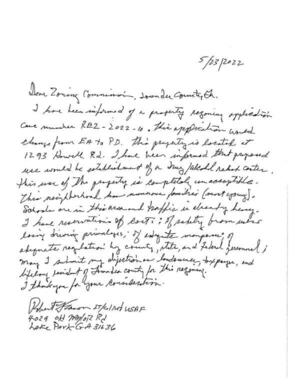 5/23/2022
Dear Zoning Commission, Lowndes County, Ga.
I have been informed of a property rezoning application
case number REZ-2022-4. this application would
change from EA to P.D. This property is located at
1293 Howell Rd. I have been informed that proposed
use would be establishment of a Drug/Alcohol rehab center.
This use of the property is completely unacceptable.
This neighborhood has numerous families (most young).
in this area and traffic is already heavy.
I have reservations of cost; of safety from
losing driving privileges; of adequate
adequate regulation by county, state, and Federal personnel;
may I submit my objection as landowner, taxpayer, and
lifelong resident of Lowndes county for this rezoning.
I thank you for your consideration.
Robert USAF
4029 Old Rd
Lake Park GA 31636